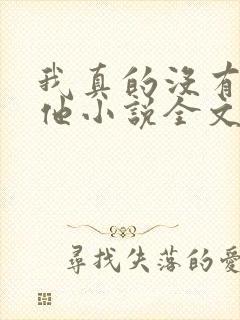 我真的没有
他小说全文
尋找失落的愛